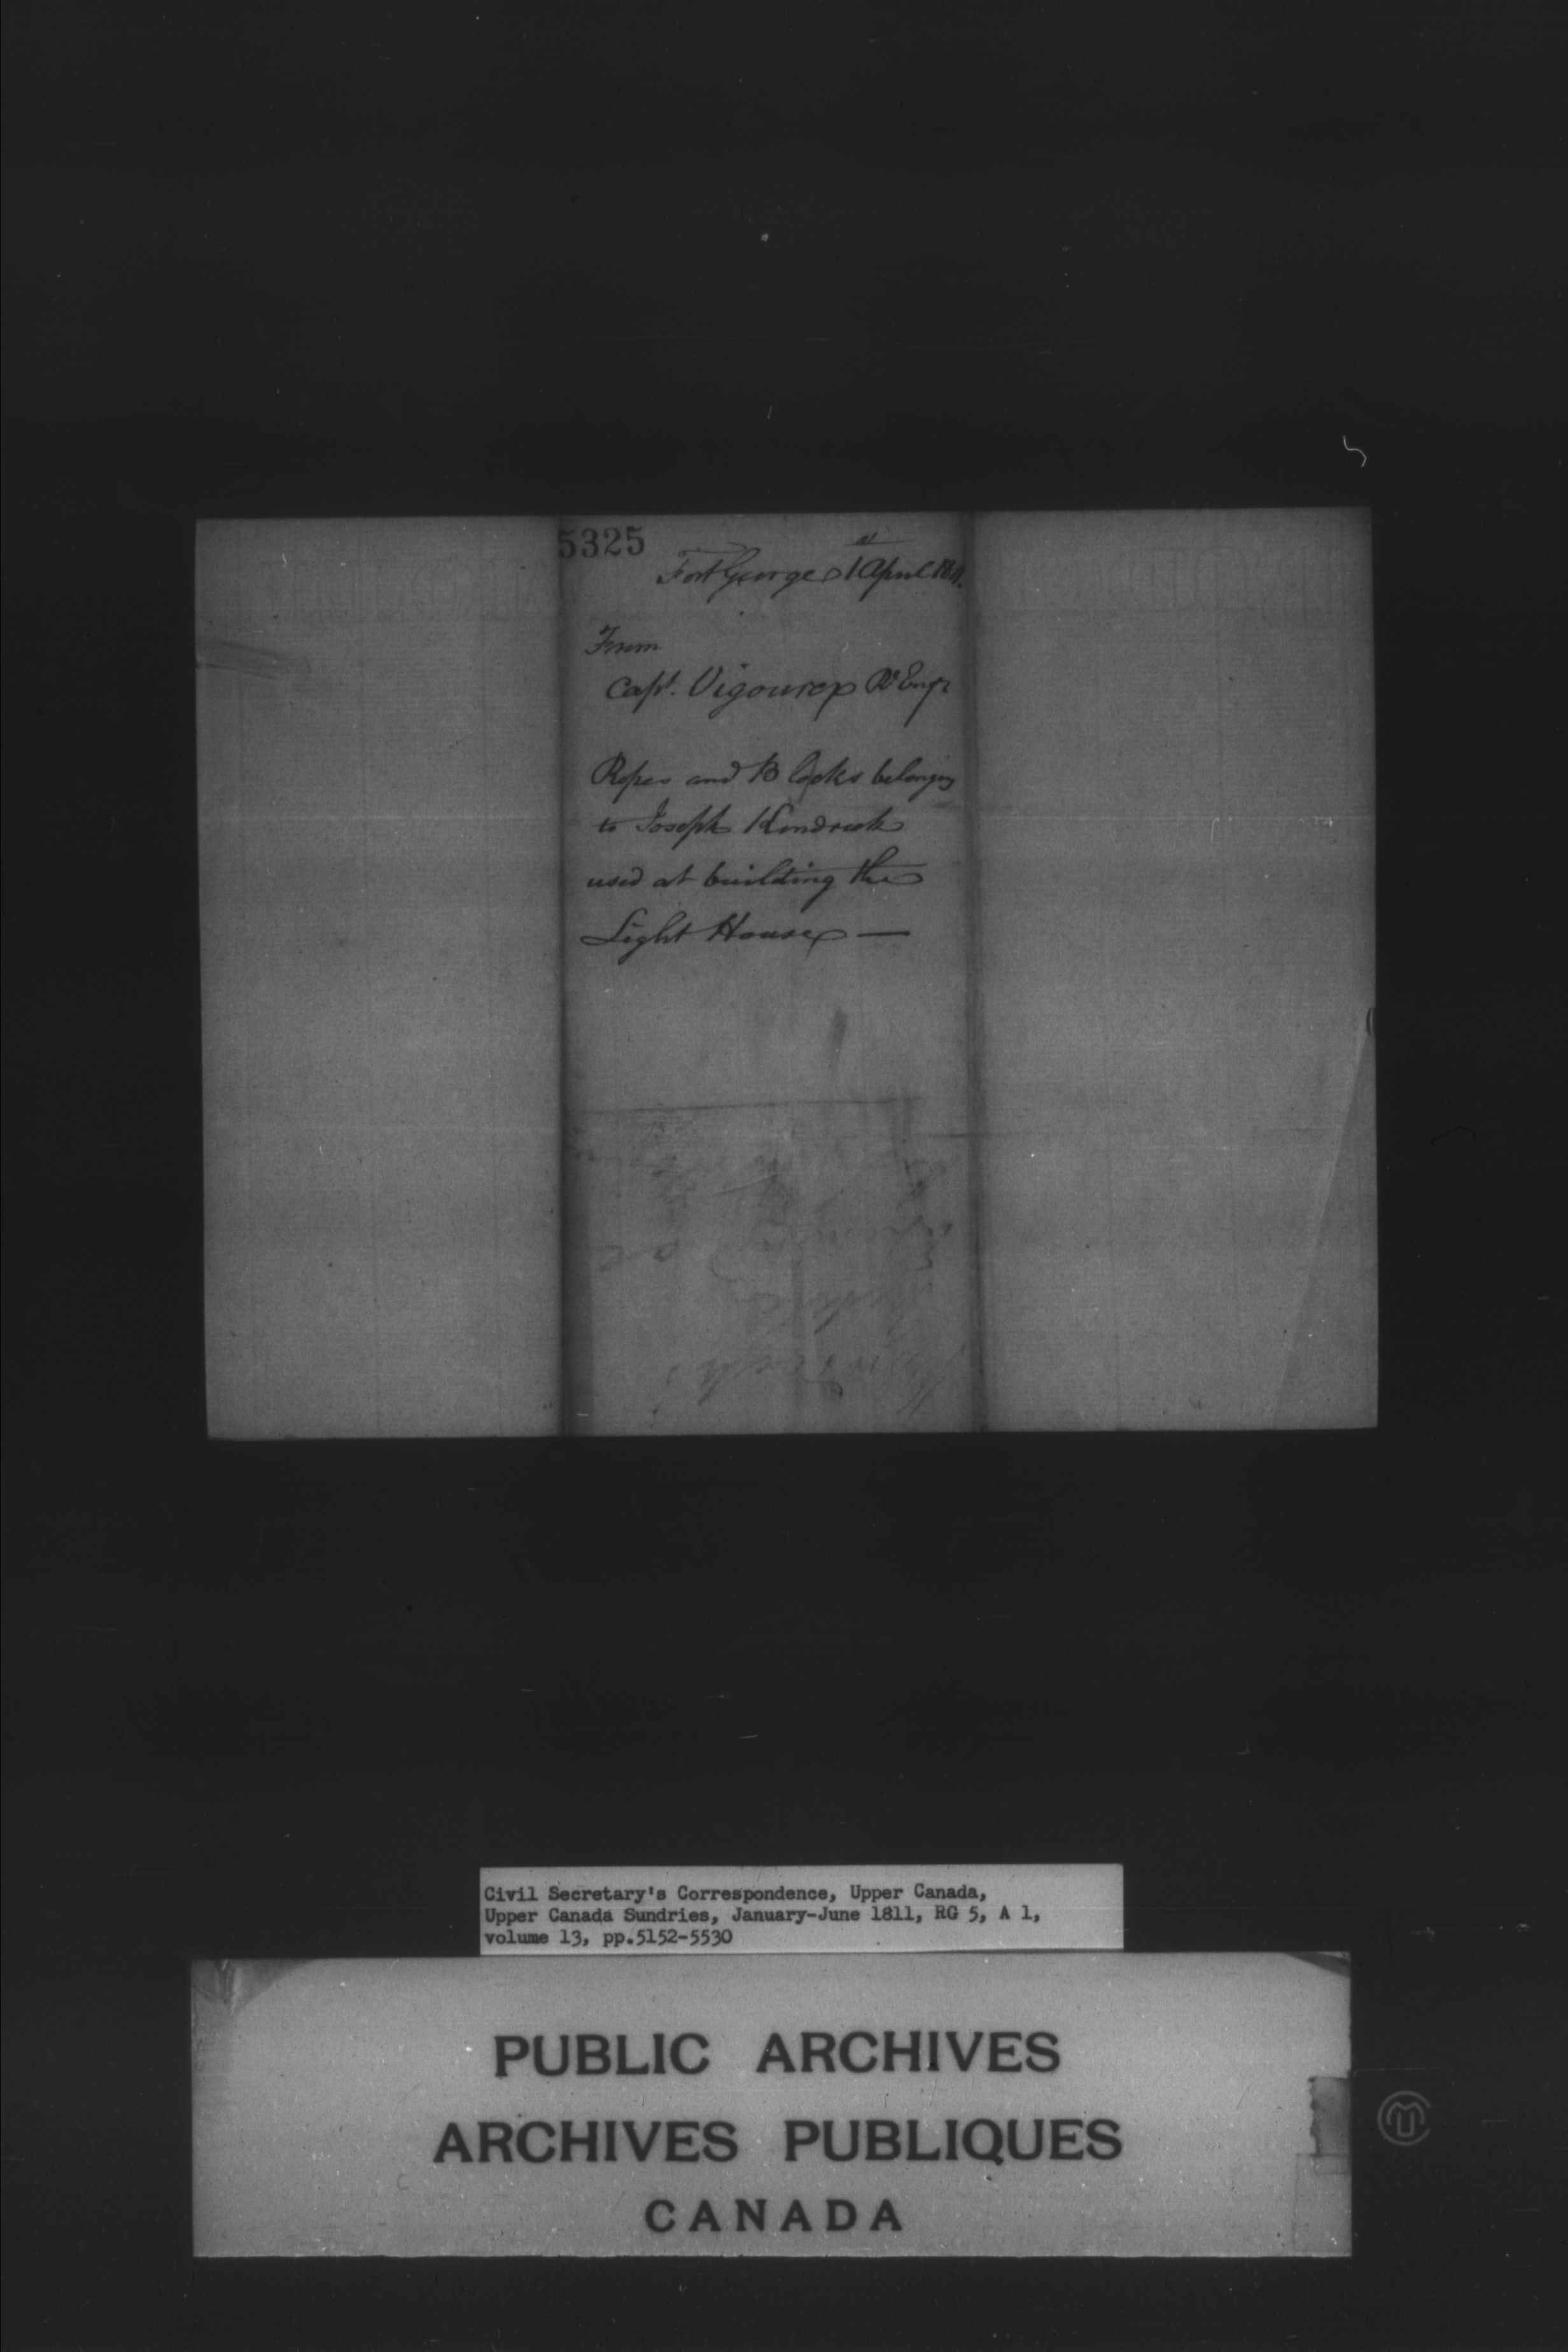 5325
Fort George 1st April 1811.
From
Capt. Vigoureux Rl Engr
Ropes and Blocks belonging
to Joseph Kendrick
used at building the
Light House —
Civil Secretary's Correspondence, Upper Canada,
Upper Canada Sundries, January-June 1811, RG 5, A 1,
volume 13, pp.5152-5530
PUBLIC ARCHIVES
ARCHIVES PUBLIQUES
CANADA